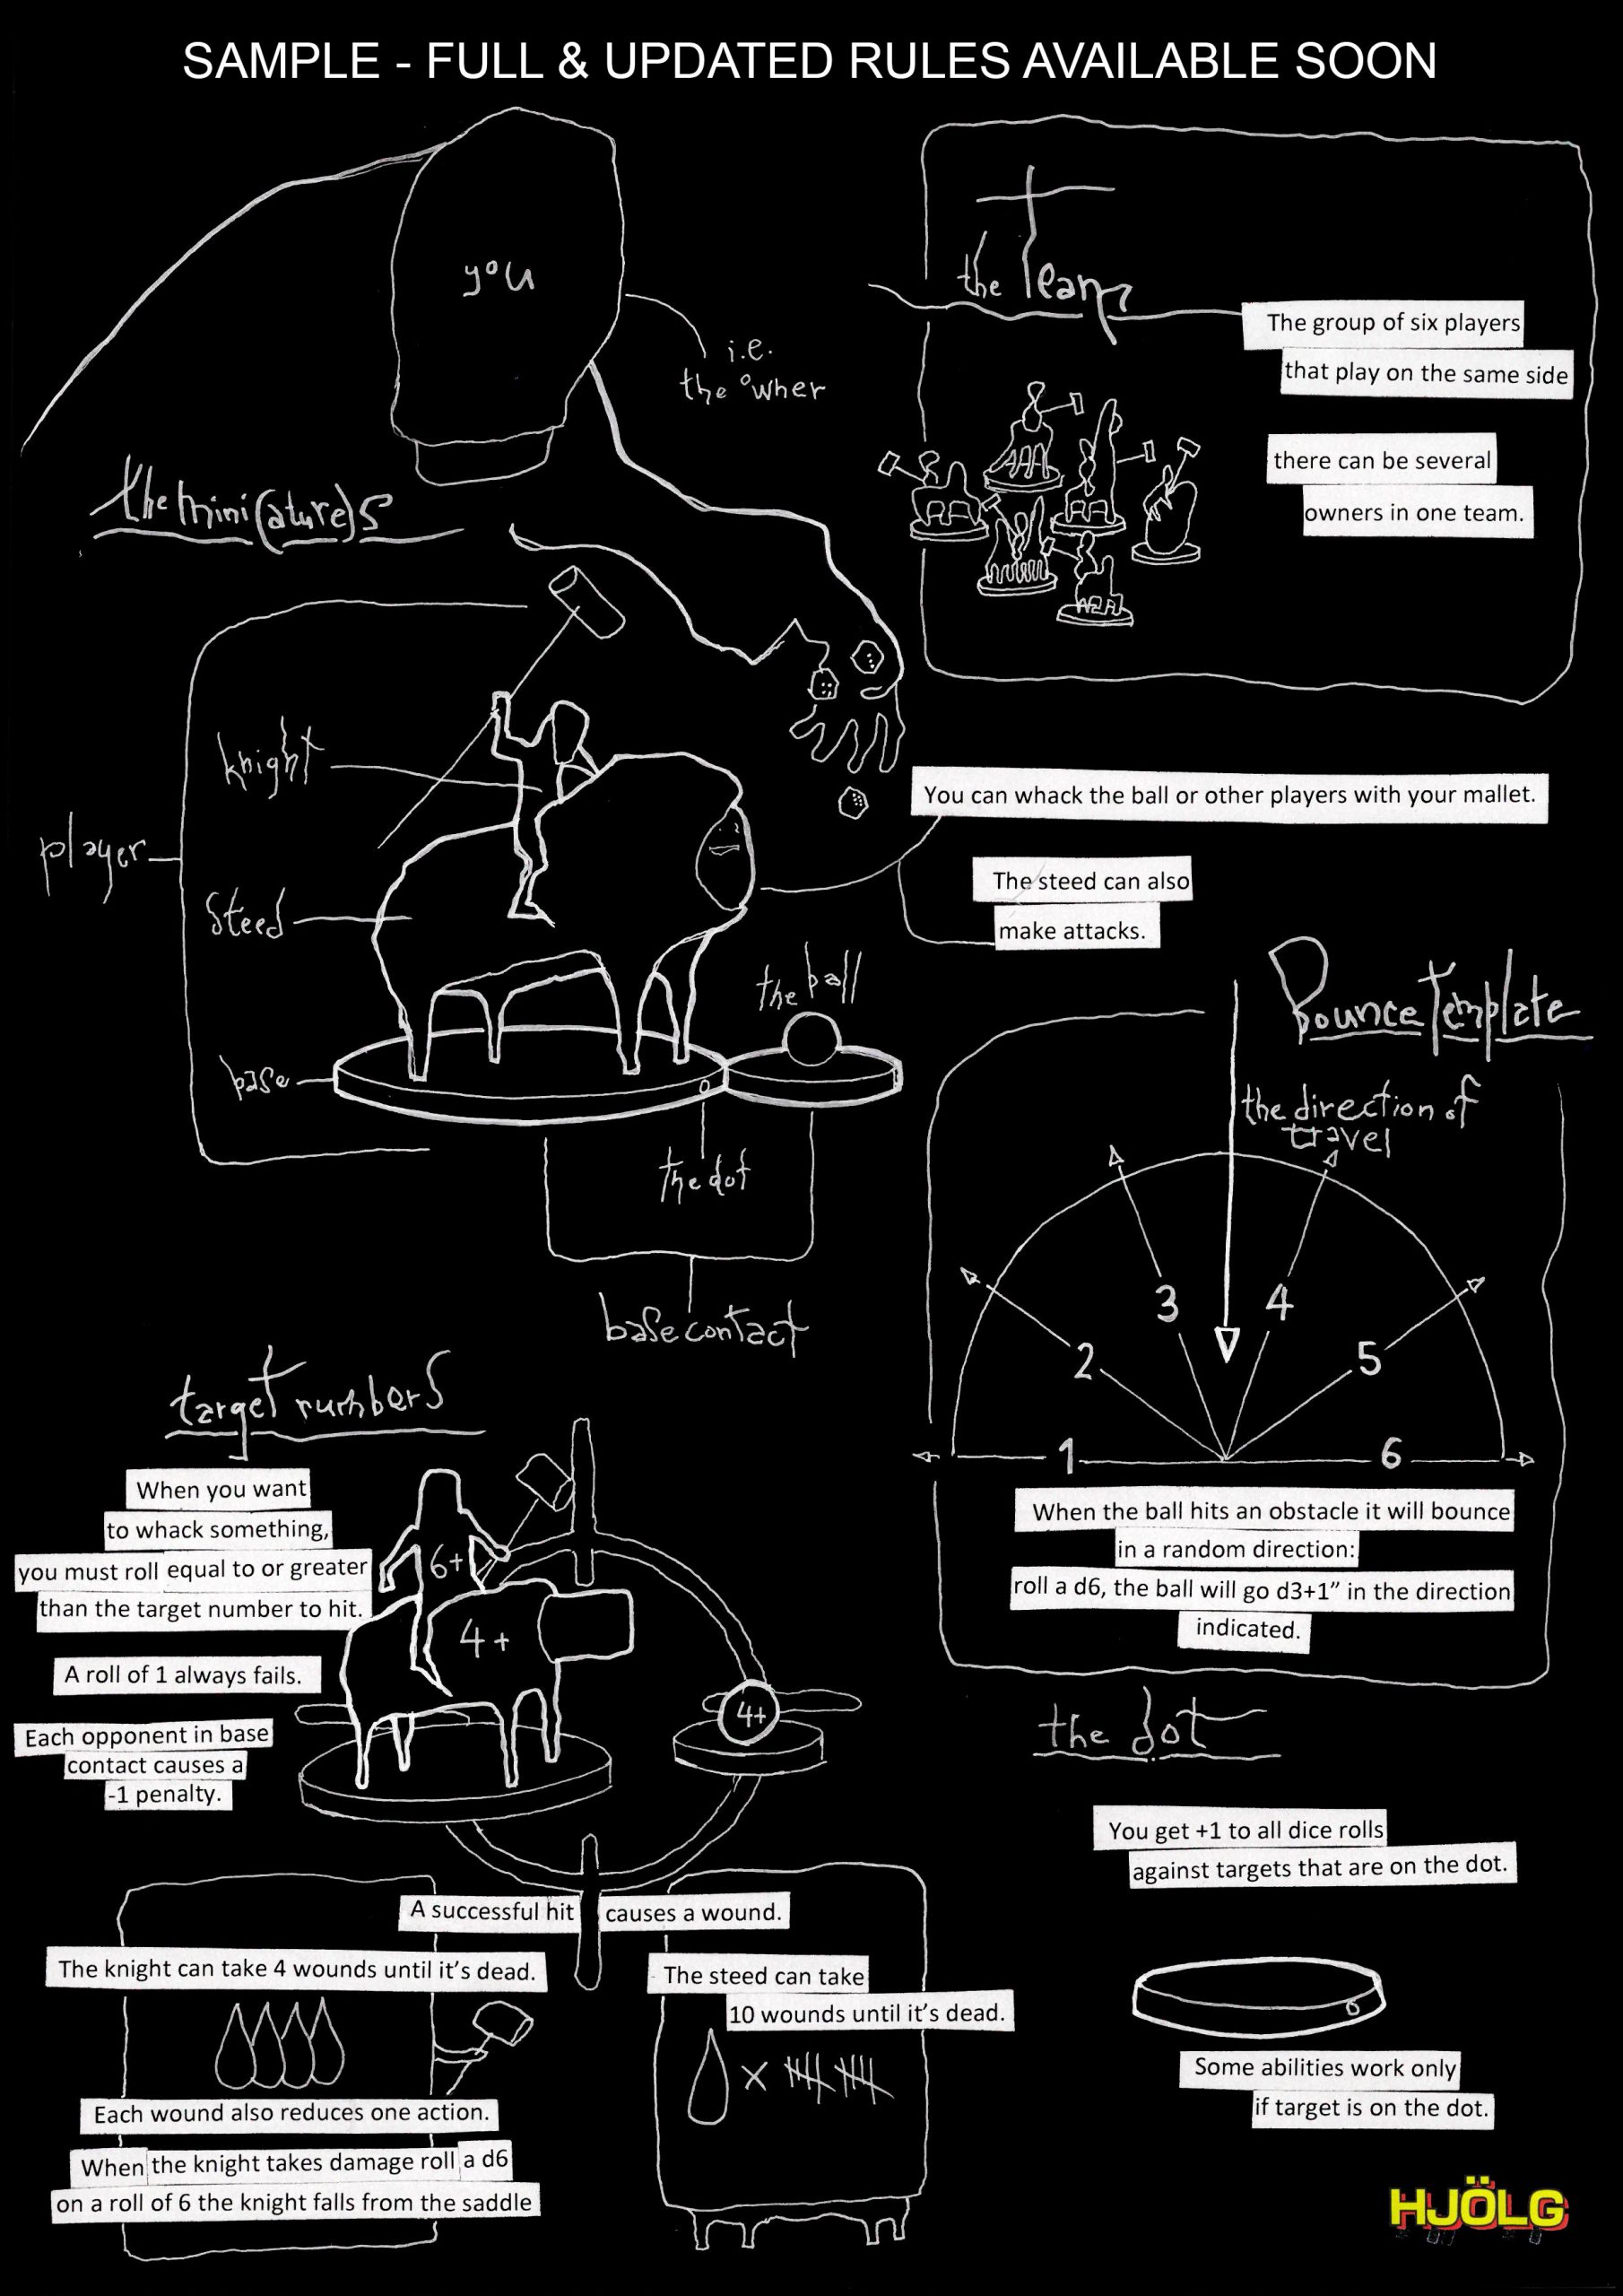 SAMPLE - FULL & UPDATED RULES AVAILABLE SOON
you
i.e.
the owner
the Team
The group of six players
that play on the same side
there can be several
owners in one team.
the mini(ature)s
player
knight
steed
base
the ball
the dot
base contact
You can whack the ball or other players with your mallet.
The steed can also
make attacks.
Bounce Template
the direction of
travel
1
2
3
4
5
6
When the ball hits an obstacle it will bounce
in a random direction:
roll a d6, the ball will go d3+1” in the direction
indicated.
target numbers
When you want
to whack something,
you must roll equal to or greater
than the target number to hit.
A roll of 1 always fails.
Each opponent in base
contact causes a
-1 penalty.
6+
4+
4+
A successful hit causes a wound.
The knight can take 4 wounds until it’s dead.
Each wound also reduces one action.
When the knight takes damage roll a d6
on a roll of 6 the knight falls from the saddle
The steed can take
10 wounds until it’s dead.
x
the dot
You get +1 to all dice rolls
against targets that are on the dot.
Some abilities work only
if target is on the dot.
HJÖLG